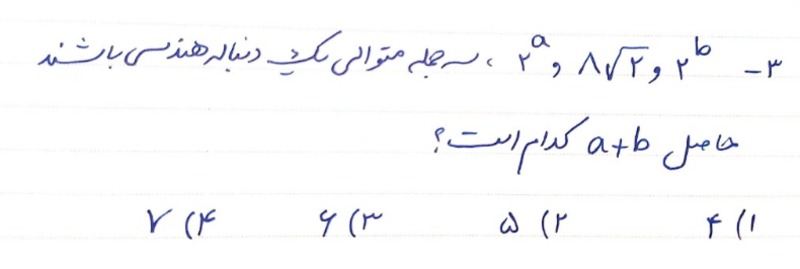 ۳- ۲^b و ۸√۲ و ۲^a ، سه جمله متوالی یک دنباله هندسی باشند
حاصل a+b کدام است؟
۱) ۴ ۲) ۵ ۳) ۶ ۴) ۷